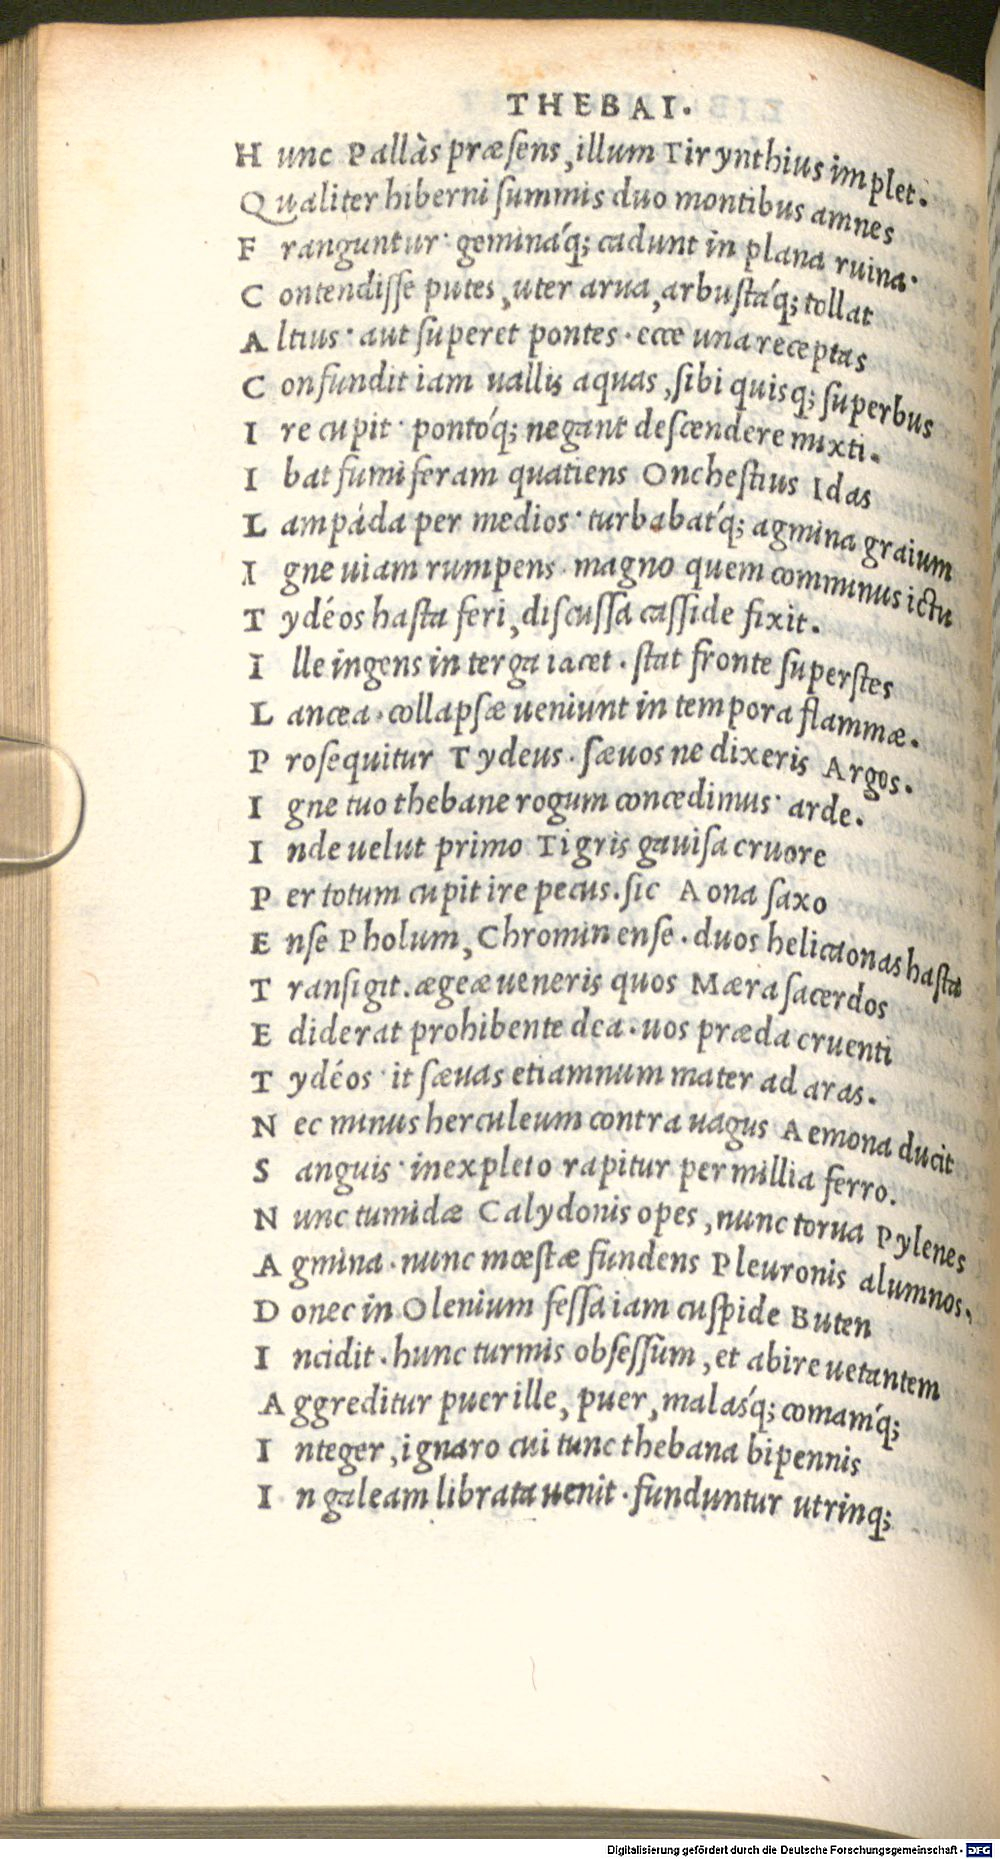 THEBAI.
Hunc Pallàs præſens, illum Tirynthius implet.
Qualiter hiberni ſummis duo montibus amnes
Franguntur· geminá'q; cadunt in plana ruina·
Contendiſſe putes, uter arua, arbuſtá'q; tollat
Altius· aut ſuperet pontes. ecce una receptas
Confundit iam uallis aquas, ſibi quisq; ſuperbus
Ire cupit· pontó'q; negant deſcendere mixti.
Ibat fumiferam quatiens Oncheſtius Idas
Lampáda per medios· turbabat'q; agmina graium
Igne uiam rumpens. magno quem comminus ictu
Tydéos haſta feri, diſcuſſa caſſide fixit.
Ille ingens in terga iacet. ſtat fronte ſuperſtes
Lancea. collapſæ ueniunt in tempora flammæ.
Proſequitur Tydeus. ſæuos ne dixeris Argos.
Igne tuo thebane rogum concedimus· arde.
Inde uelut primo Tigris gauiſa cruore
Per totum cupit ire pecus. ſic Aona ſaxo
Enſe Pholum, Chromin enſe. duos helicaonas haſta
Tranſigit. ægeæ ueneris quos Mæra ſacerdos
Ediderat prohibente dea. uos præda cruenti
Tydéos· it ſæuas etiamnum mater ad aras.
Nec minus herculeum contra uagus Aemona ducit
Sanguis· inexpleto rapitur per millia ferro.
Nunc tumidæ Calydonis opes, nunc torua Pylenes
Agmina. nunc mœſtæ fundens Pleuronis alumnos.
Donec in Olenium feſſa iam cuſpide Buten
Incidit. hunc turmis obſeſſum, et abire uetantem
Aggreditur puer ille, puer, malas'q; comam'q;
Integer, ignaro cui tunc thebana bipennis
In galeam librata uenit. funduntur utrinq;
Digitalisierung gefördert durch die Deutsche Forschungsgemeinschaft - DFG